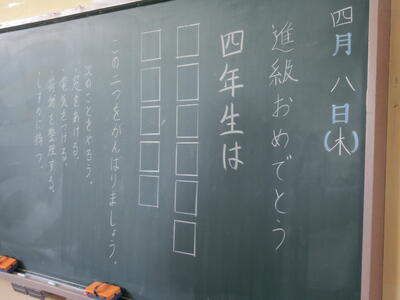 四月八日(木)
進級おめでとう
四年生は
この二つをがんばりましょう。
次のことをやろう。
・窓をあける。
・電気をつける。
・荷物を整理する。
・しずかに待つ。